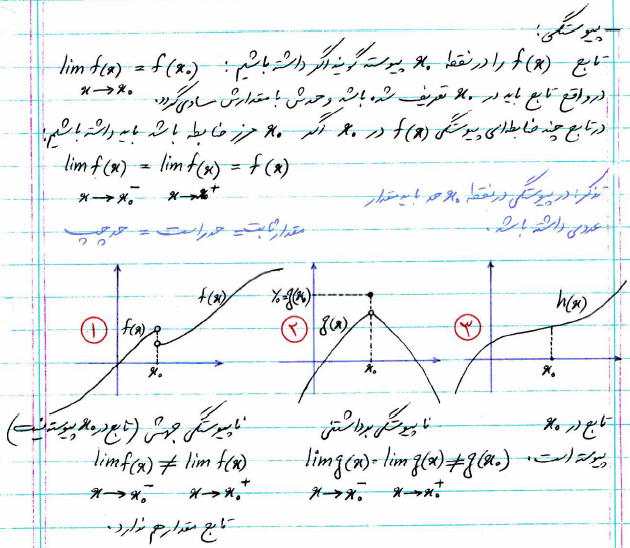 پیوستگی:
تابع f(x) را در نقطه x₀ پیوسته گویند اگر داشته باشیم: lim f(x) = f(x₀)
x→x₀
در واقع تابع باید در x₀ تعریف شده باشد و حدش با مقدارش مساوی گردد.
در تابع چند ضابطه‌ای پیوستگی f(x) در x₀ اگر x₀ مرز ضابطه باشد باید داشته باشیم:
lim f(x) = lim f(x) = f(x)
x→x₀⁻ x→x₀⁺
تذکر: در پیوستگی در نقطه x₀ حد باید مقدار
عددی داشته باشد.
مقدار ثابت = حد راست = حد چپ
۱ f(x) f(x) x₀
۲ y₀=g(x₀) g(x) x₀
۳ h(x) x₀
ناپیوستگی جهش (تابع در x₀ پیوسته نیست)
lim f(x) ≠ lim f(x)
x→x₀⁻ x→x₀⁺
تابع مقدار هم ندارد.
ناپیوستگی برداشتنی
lim g(x) = lim g(x) ≠ g(x₀)
x→x₀⁻ x→x₀⁺
تابع در x₀
پیوسته است.